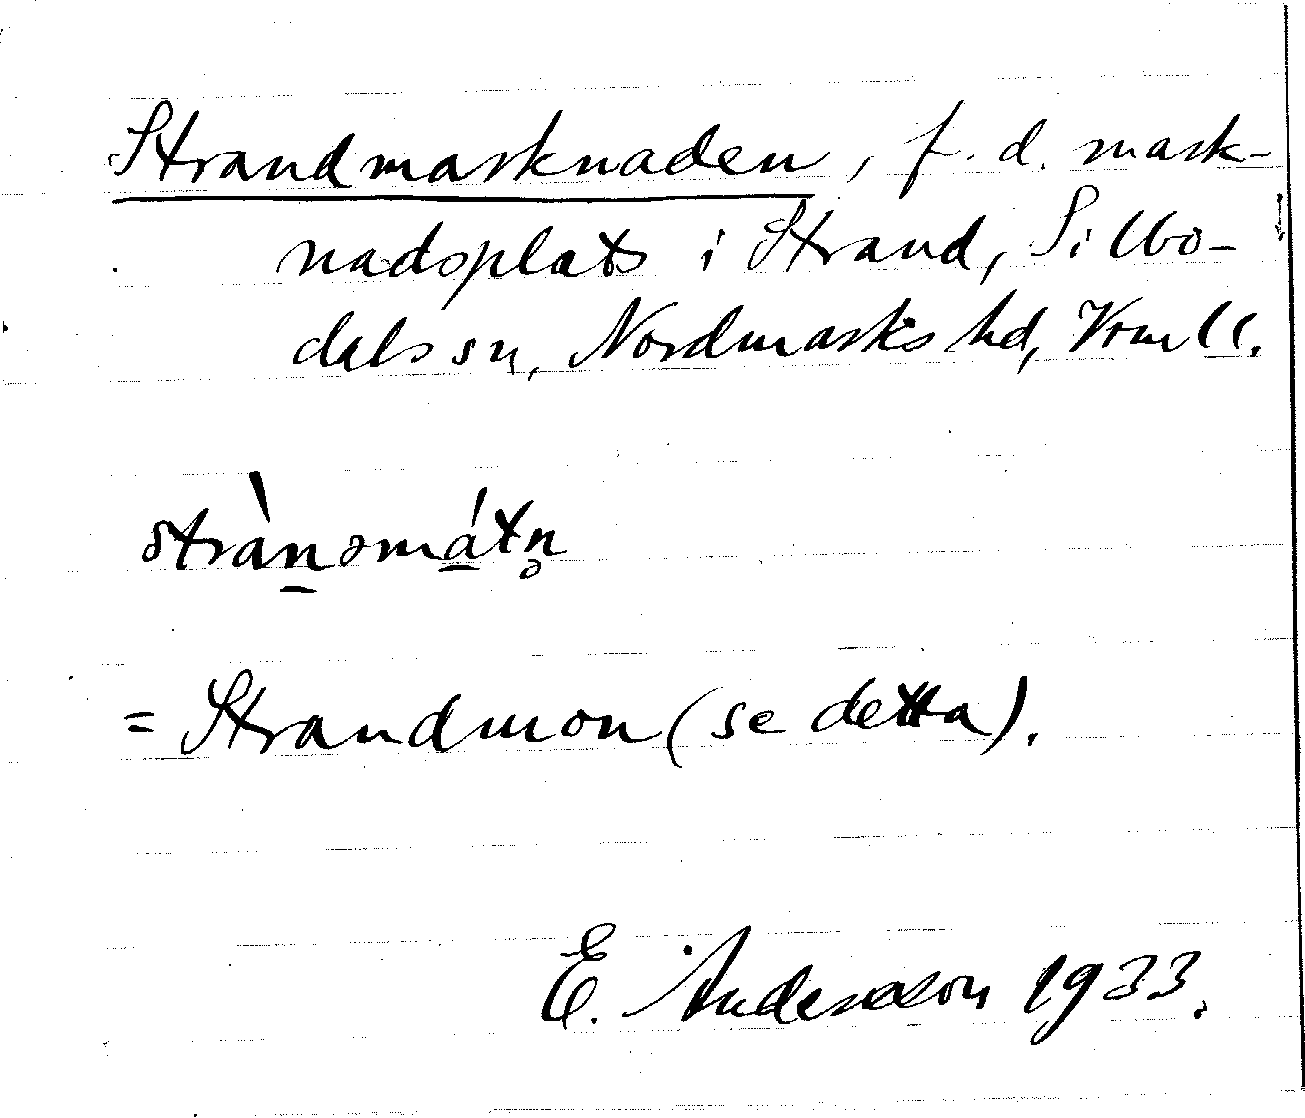 Strandmarknaden, f. d. mark-
nadsplats i Strand, Silbo-
dals sn, Nordmarks hd, Vrml.
= Strandmon (se detta).
E. Andersson 1933.